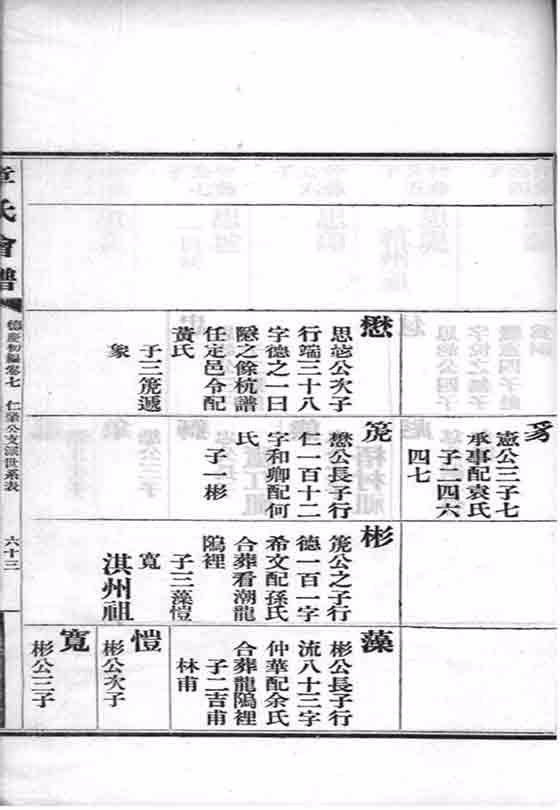 豸
憲公三子七
承事配袁氏
子二四六
四七
懋
思䓕公次子
行端三十八
字德之一曰
隧之餘杭譜
任定邑令配
黃氏
子三箎遞
象
箎
懋公長子行
仁一百十二
字和卿配何
氏
子一彬
彬
箎公之子行
德一百一字
希文配孫氏
合葬看潮龍
隝裡
子三藻愷
寬
淇州祖
藻
彬公長子行
流八十三字
仲華配余氏
合葬龍隝裡
子二吉甫
林甫
愷
彬公次子
寬
彬公三子
氏會譜
德慶初編卷七
仁肇公支派世系表
六十三